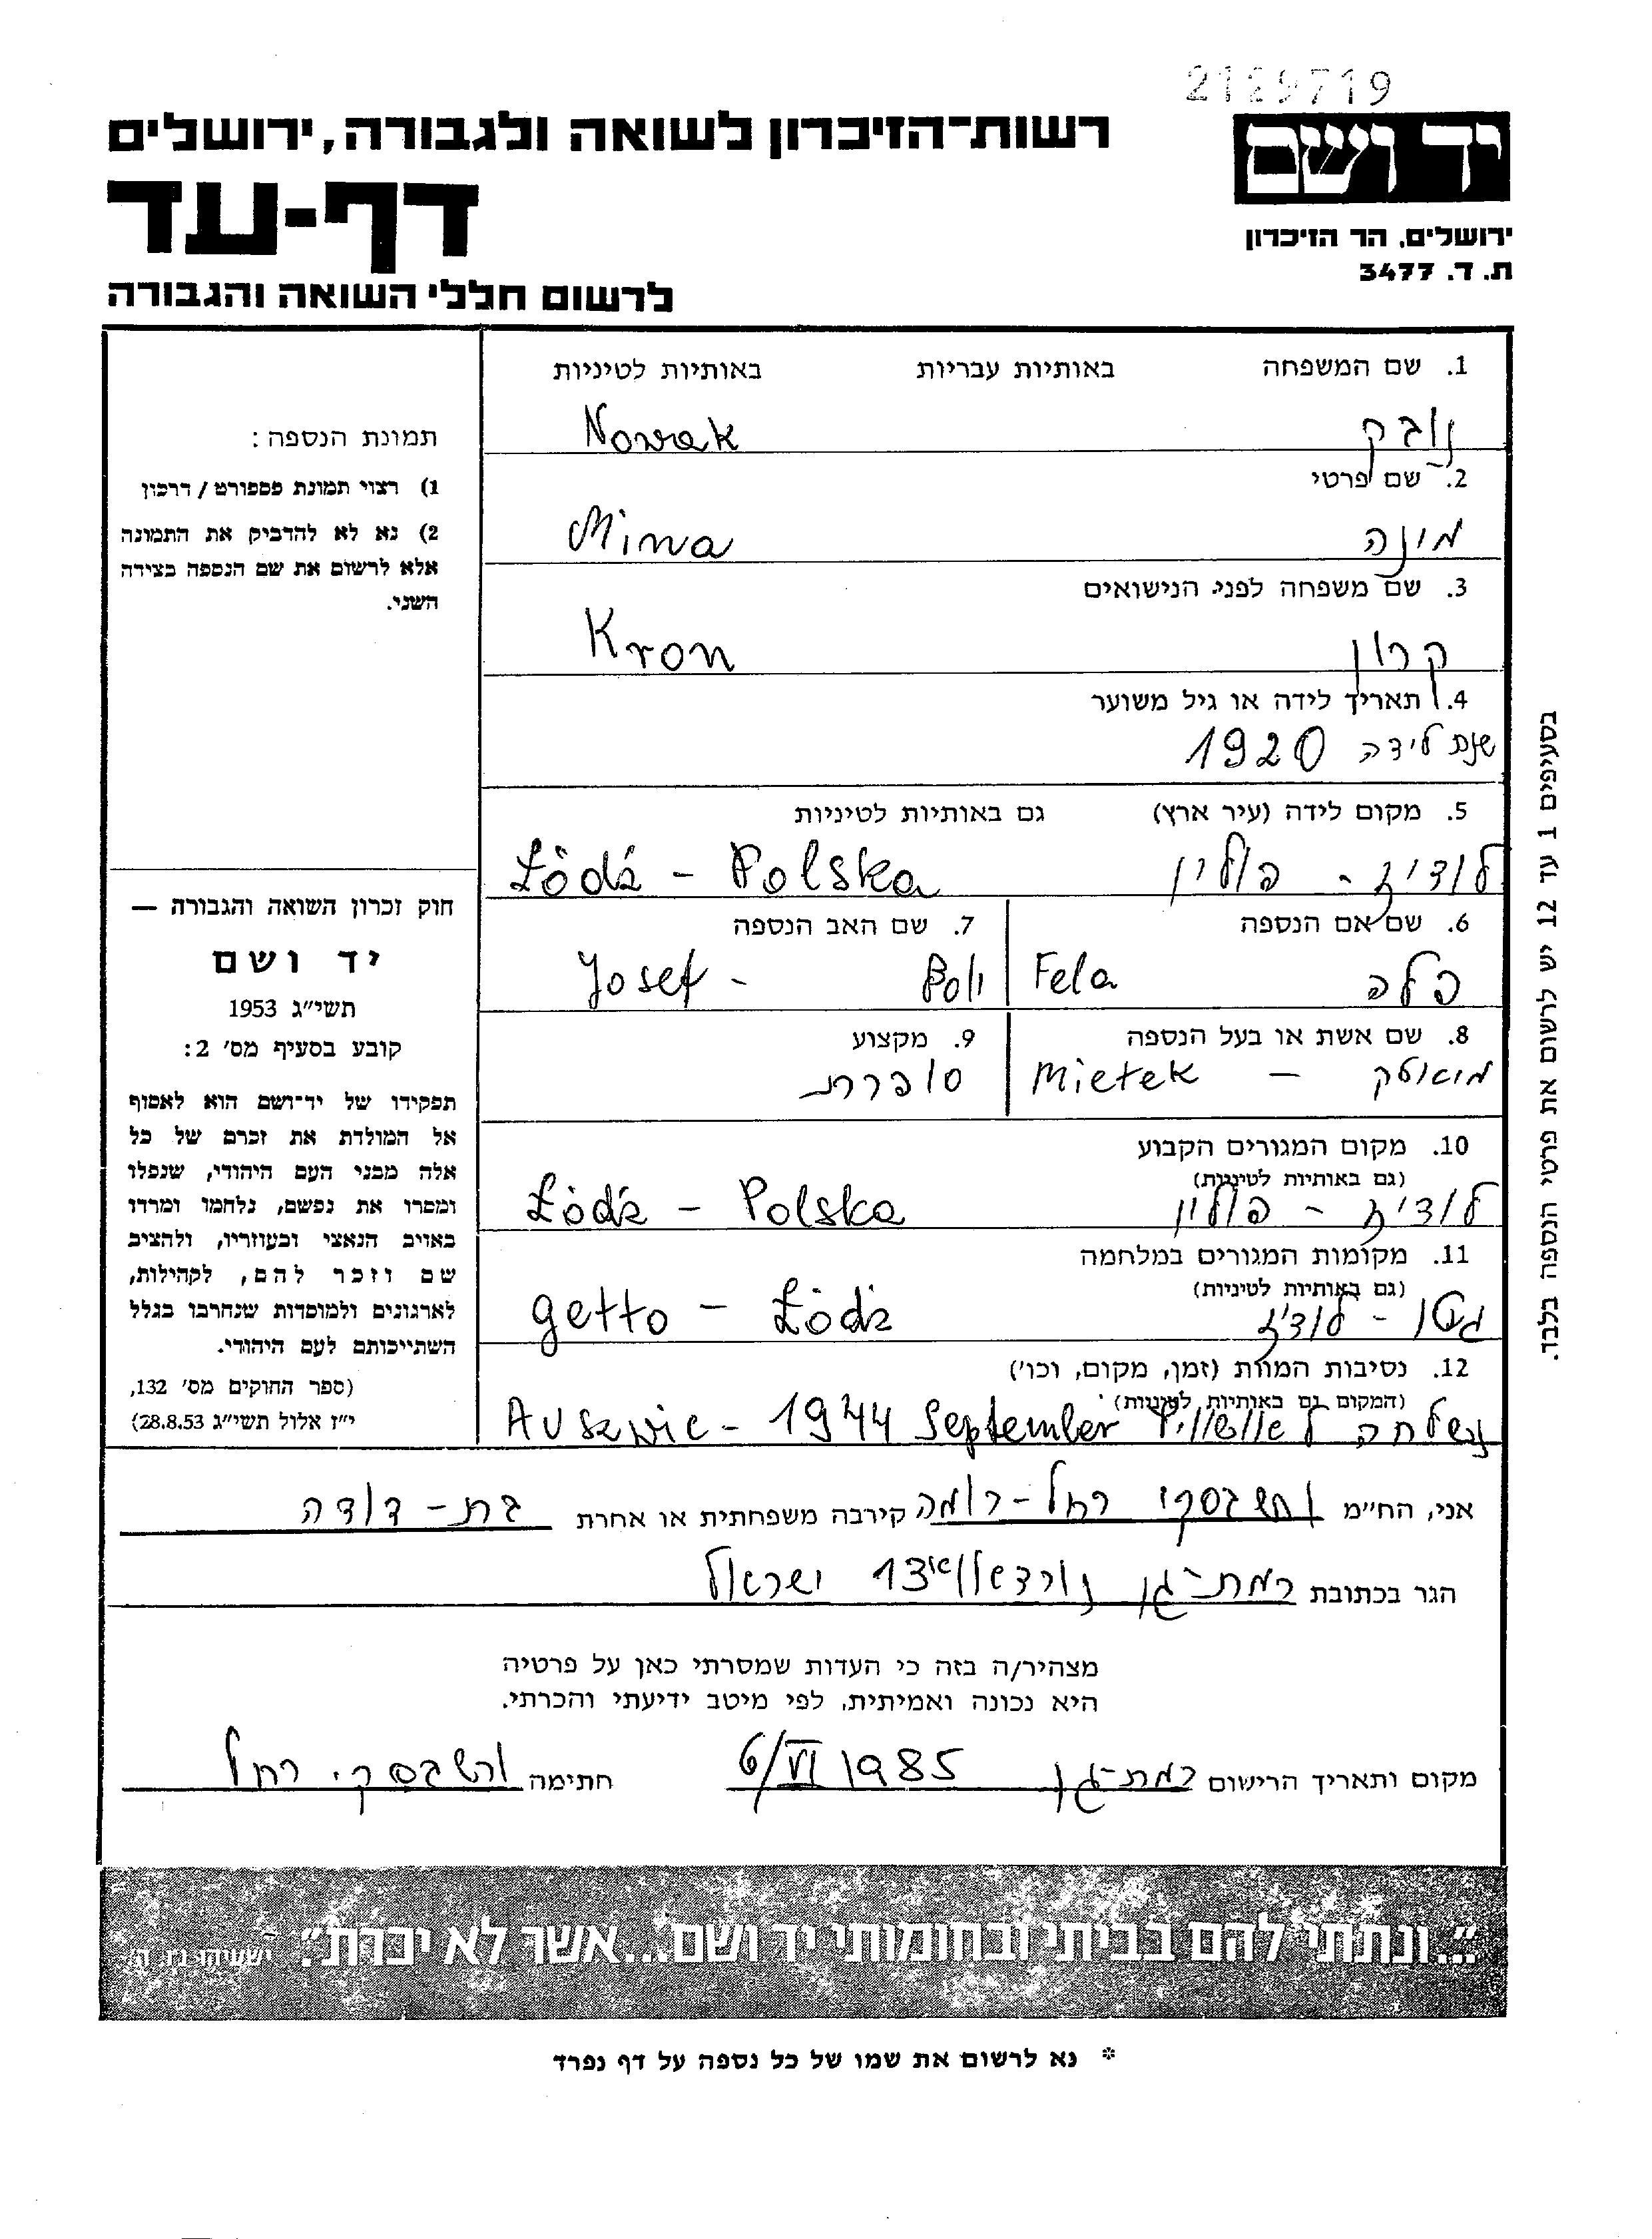 2129719
יד ושם
רשות־הזיכרון לשואה ולגבורה, ירושלים
דף-עד
ירושלים, הר הזיכרון
ת. ד. 3477
לרשום חללי השואה והגבורה
1. שם המשפחה באותיות עבריות באותיות לטיניות
נובק Nowak
2. שם פרטי
מינה Mina
3. שם משפחה לפני הנישואים
קרון Kron
4. תאריך לידה או גיל משוער
שנת לידה 1920
5. מקום לידה (עיר ארץ) גם באותיות לטיניות
לודיז - פולין Łódź - Polska
6. שם אם הנספה 7. שם האב הנספה
פלה Fela Josef -
8. שם אשת או בעל הנספה 9. מקצוע
מיאטק - Mietek סופרת
10. מקום המגורים הקבוע
(גם באותיות לטיניות)
לודיז - פולין Łódź - Polska
11. מקומות המגורים במלחמה
(גם באותיות לטיניות)
גטו - לודז getto - Łódź
12. נסיבות המוות (זמן, מקום, וכו')
(המקום גם באותיות לטיניות)
נשלחה לאושוויץ Auszwic - 1944 September
תמונת הנספה:
1) רצוי תמונת פספורט / דרכון
2) נא לא להדביק את התמונה
אלא לרשום את שם הנספה בצידה
השני.
חוק זכרון השואה והגבורה —
יד ושם
תשי״ג 1953
קובע בסעיף מס' 2:
תפקידו של יד־ושם הוא לאסוף
אל המולדת את זכרם של כל
אלה מבני העם היהודי, שנפלו
ומסרו את נפשם, נלחמו ומרדו
באויב הנאצי ובעוזריו, ולהציב
שם וזכר להם, לקהילות,
לארגונים ולמוסדות שנחרבו בגלל
השתייכותם לעם היהודי.
(ספר החוקים מס' 132,
י״ז אלול תשי״ג 28.8.53)
בסעיפים 1 עד 12 יש לרשום את פרטי הנספה בלבד.
אני, הח״מ ורשבסקי רחל - רומה קירבה משפחתית או אחרת בת - דודה
הגר בכתובת רמת-גן 13 ישראל
מצהיר/ה בזה כי העדות שמסרתי כאן על פרטיה
היא נכונה ואמיתית, לפי מיטב ידיעתי והכרתי.
מקום ותאריך הרישום רמת-גן 6/VI 1985 חתימה ורשבסקי רחל
"...ונתתי להם בביתי ובחומותי יד ושם...אשר לא יכרת". ישעיהו נו, ה'
* נא לרשום את שמו של כל נספה על דף נפרד